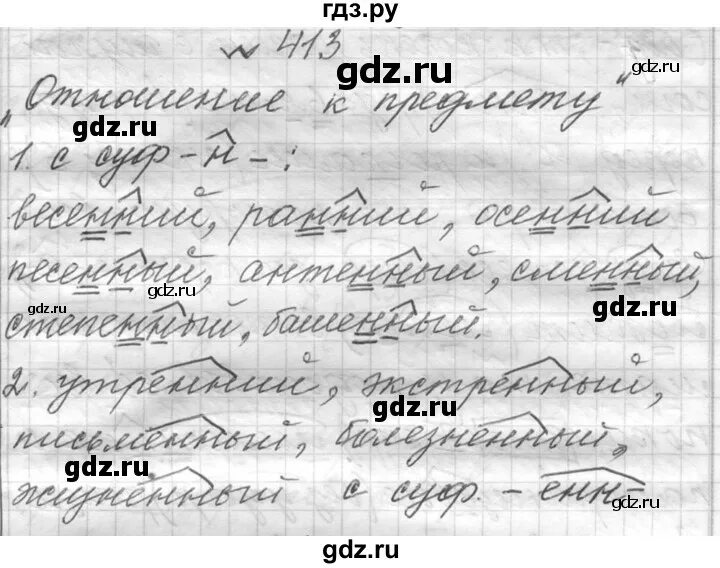 гдз.ру
№ 413
gdz.ru
gdz.ru
"Отношение к предмету"
gdz.ru
1. с суф - н - :
весенний, ранний, осенний
песенный, антенный, сменный,
gdz.ru
gdz.ru
gdz.ru
степенный, башенный.
2. утренний, экстренный,
gdz.ru
письменный, болезненный,
gdz.ru
с суф. - енн-
gdz.ru